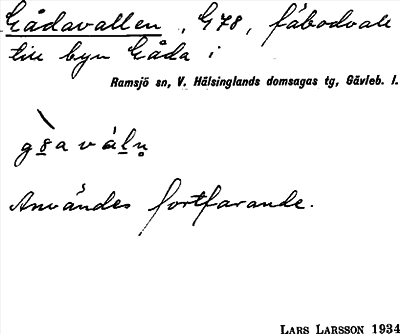 Gådavallen, G78, fäbodvall
till byn Gåda i
Ramsjö sn, V. Hälsinglands domsagas tg, Gävleb. l.
Användes fortfarande.
LARS LARSSON 1934